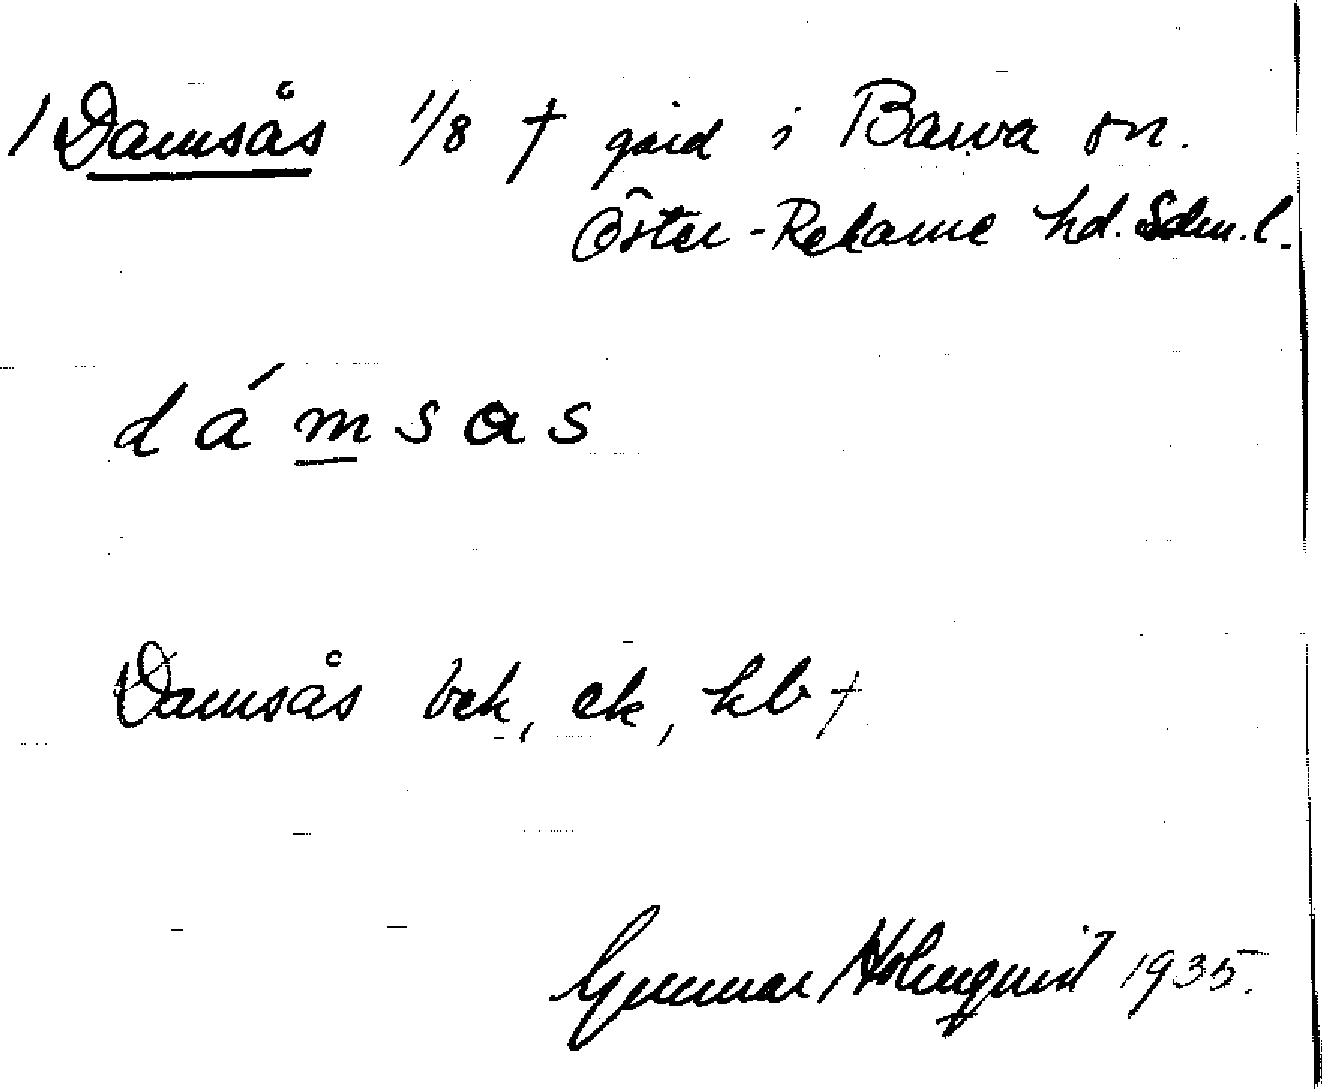 / Damsås 1/8 † gård i Barva sn.
Öster-Rekarne hd. Sdm. l.
dámsas
Damsås bek, ek, kb †
Gunnar Holmquist 1935.